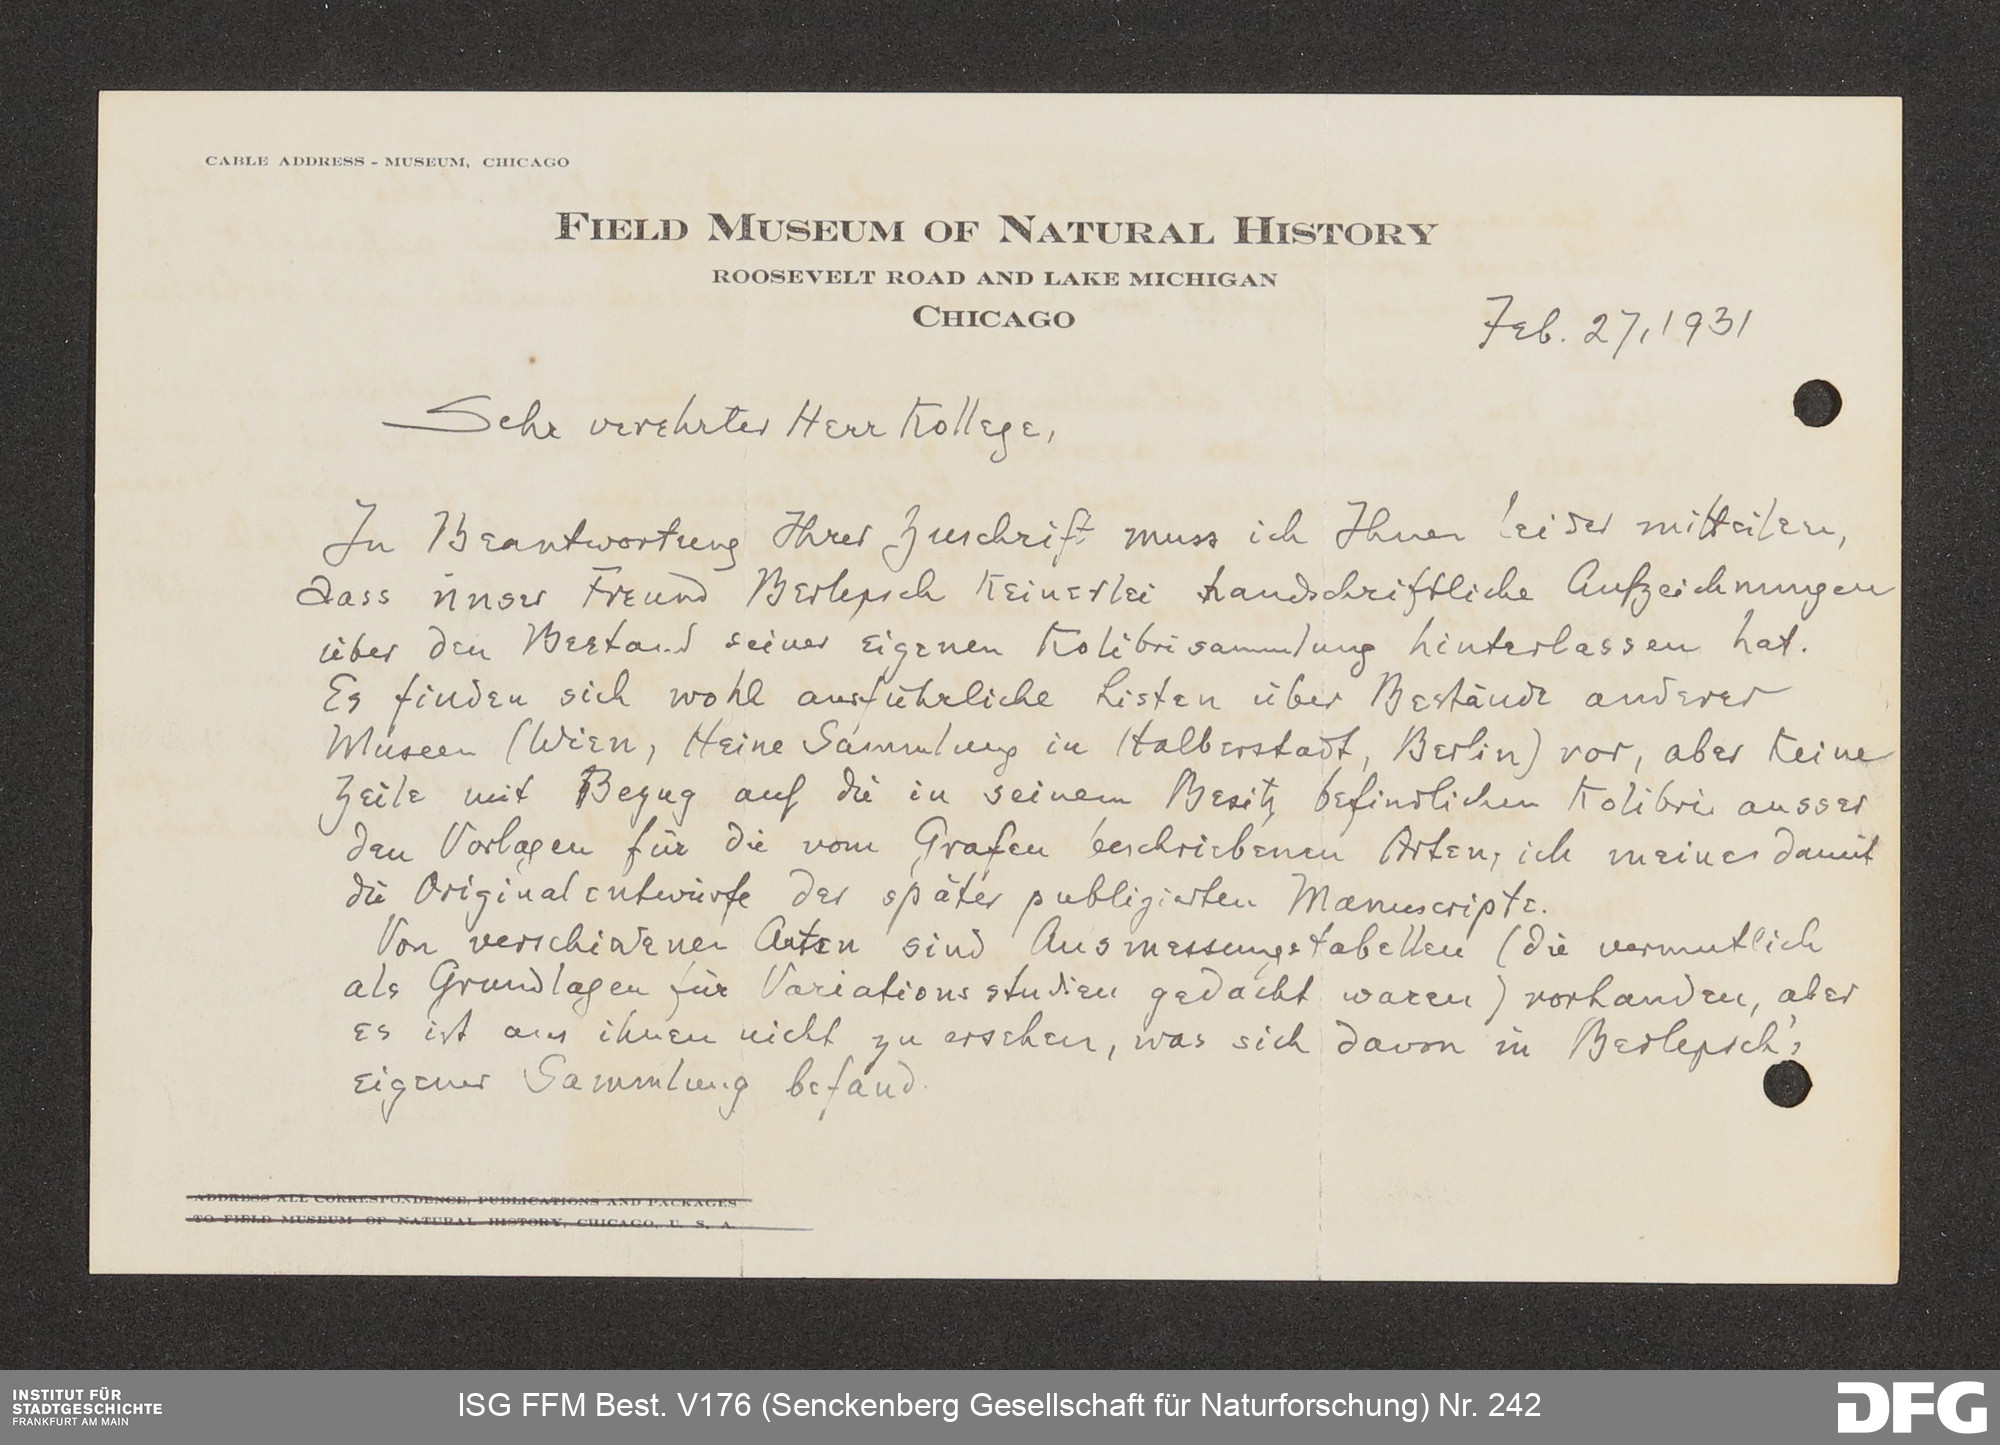 CABLE ADDRESS - MUSEUM, CHICAGO
FIELD MUSEUM OF NATURAL HISTORY
ROOSEVELT ROAD AND LAKE MICHIGAN
CHICAGO
Feb. 27, 1931
Sehr verehrter Herr Kollege,
In Beantwortung Ihrer Zuschrift muss ich Ihnen leider mitteilen,
dass unser Freund Berlepsch keinerlei handschriftliche Aufzeichnungen
über den Bestand seiner eigenen Kolibrisammlung hinterlassen hat.
Es finden sich wohl ausführliche Listen über Bestände anderer
Museen (Wien, Heine Sammlung in Halberstadt, Berlin) vor, aber keine
Zeile mit Bezug auf die in seinem Besitz befindlichen Kolibris ausser
den Vorlagen für die vom Grafen beschriebenen Arten, ich meine damit
die Originalentwürfe der später publizierten Manuscripte.
Von verschiedenen Arten sind Ausmessungstabellen (die vermutlich
als Grundlagen für Variationsstudien gedacht waren) vorhanden, aber
es ist aus ihnen nicht zu ersehen, was sich davon in Berlepsch's
eigener Sammlung befand.
ADDRESS ALL CORRESPONDENCE, PUBLICATIONS AND PACKAGES
TO FIELD MUSEUM OF NATURAL HISTORY, CHICAGO, U. S. A.
INSTITUT FÜR
STADTGESCHICHTE
FRANKFURT AM MAIN
ISG FFM Best. V176 (Senckenberg Gesellschaft für Naturforschung) Nr. 242
DFG